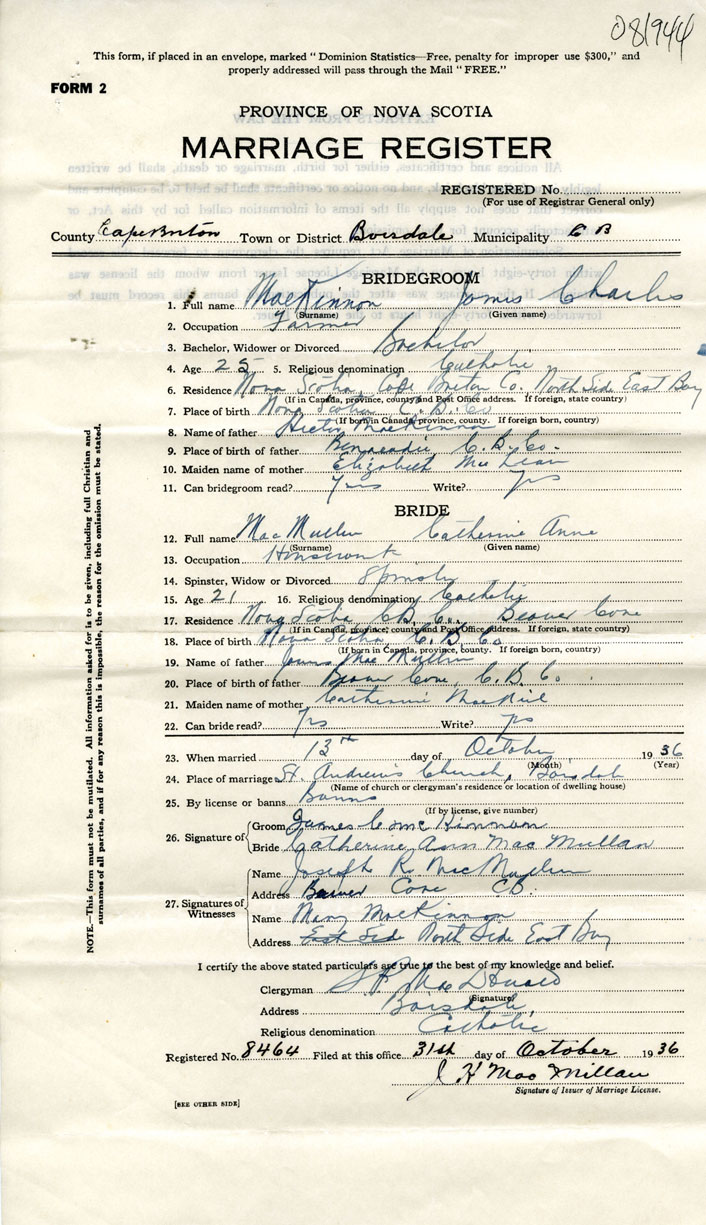 081944
This form, if placed in an envelope, marked "Dominion Statistics—Free, penalty for improper use $300," and
properly addressed will pass through the Mail "FREE."
FORM 2
PROVINCE OF NOVA SCOTIA
MARRIAGE REGISTER
REGISTERED No.
(For use of Registrar General only)
County Cape Breton Town or District Boisdale Municipality C B
BRIDEGROOM
1. Full name MacKinnon James Charles
(Surname) (Given name)
2. Occupation Farmer
3. Bachelor, Widower or Divorced Bachelor
4. Age 25 5. Religious denomination Catholic
6. Residence Nova Scotia, Cape Breton Co. North Side East Bay
(If in Canada, province, county and Post Office address. If foreign, state country)
7. Place of birth Nova Scotia C.B. Co
(If born in Canada, province, county. If foreign born, country)
8. Name of father Hector MacKinnon
9. Place of birth of father Benacadie, C.B. Co.
10. Maiden name of mother Elizabeth MacLean
11. Can bridegroom read? Yes Write? yes
BRIDE
12. Full name MacMullin Catherine Anne
(Surname) (Given name)
13. Occupation Housework
14. Spinster, Widow or Divorced Spinster
15. Age 21 16. Religious denomination Catholic
17. Residence Nova Scotia C.B. Co. Beaver Cove
(If in Canada, province, county and Post Office address. If foreign, state country)
18. Place of birth Nova Scotia C.B. Co
(If born in Canada, province, county. If foreign born, country)
19. Name of father James MacMullin
20. Place of birth of father Beaver Cove, C.B. Co.
21. Maiden name of mother Catherine MacNeil
22. Can bride read? Yes Write? yes
23. When married 13th day of October 1936
(Month) (Year)
24. Place of marriage St. Andrew's Church, Boisdale
(Name of church or clergyman's residence or location of dwelling house)
25. By license or banns Banns
(If by license, give number)
26. Signature of Groom James C McKinnon
Bride Catherine Ann MacMullan
27. Signatures of Witnesses Name Joseph R. MacMullin
Address Beaver Cove CB.
Name Mary MacKinnon
Address East Side North Side East Bay
I certify the above stated particulars are true to the best of my knowledge and belief.
Clergyman MacDonald
(Signature)
Address Boisdale,
Religious denomination Catholic
Registered No. 8464 Filed at this office 31st day of October 1936
J. H MacMillan
Signature of Issuer of Marriage License.
[SEE OTHER SIDE]
NOTE.—This form must not be mutilated. All information asked for is to be given, including full Christian and
surnames of all parties, and if for any reason this is impossible, the reason for the omission must be stated.